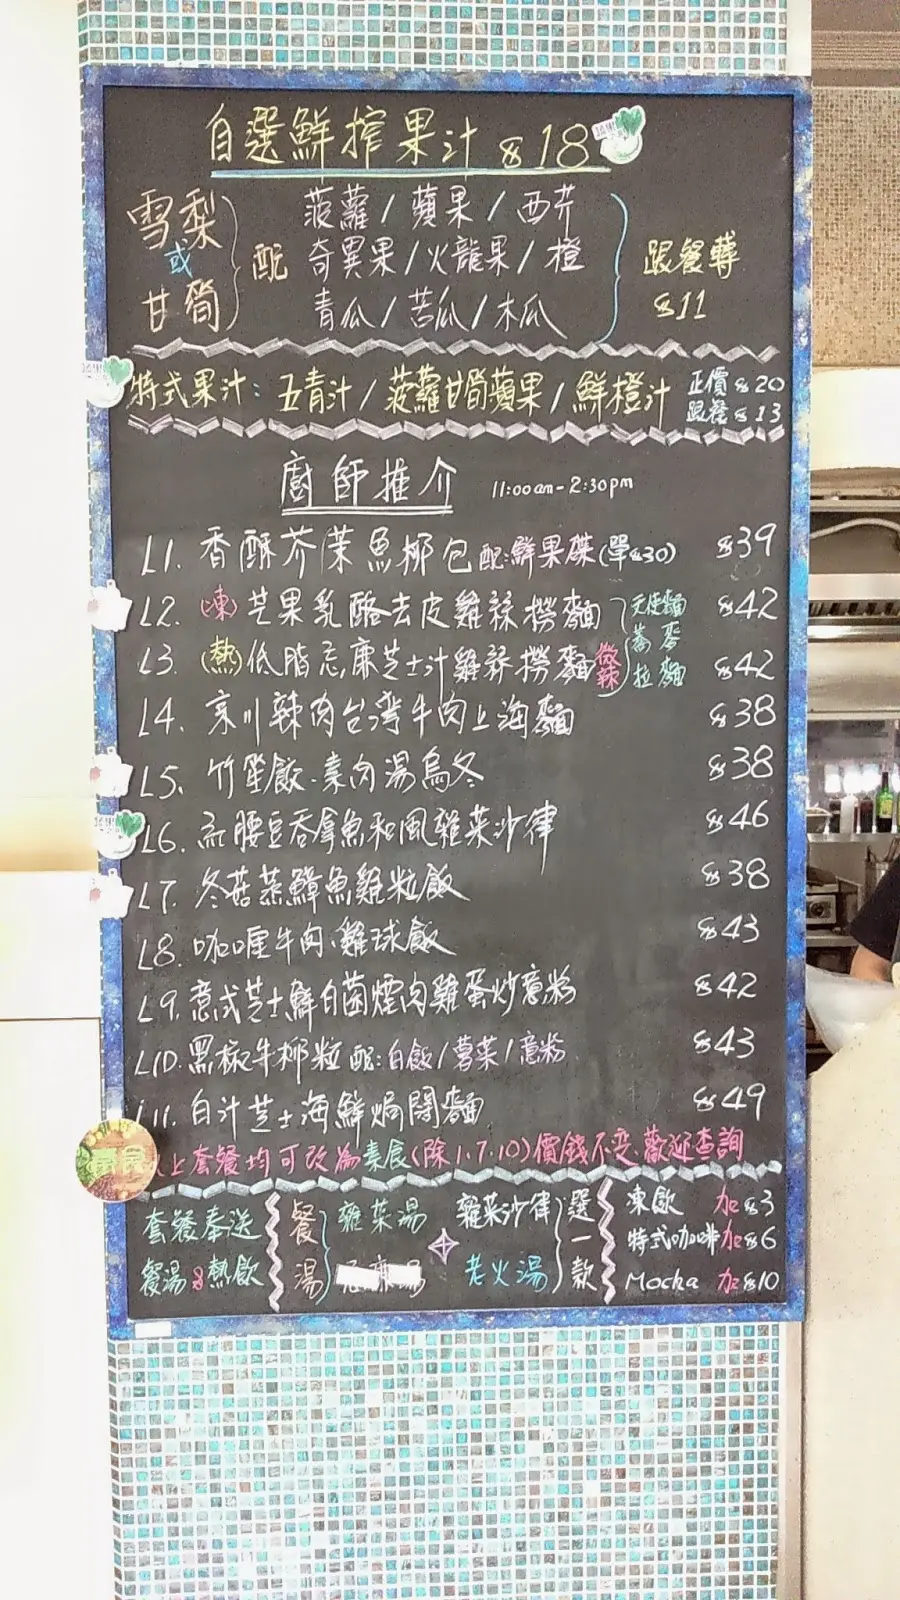 自選鮮榨果汁 $18
雪梨 或 甘筍 配 菠蘿/蘋果/西芹
奇異果/火龍果/橙
青瓜/苦瓜/木瓜
跟餐轉
$11
特式果汁: 五青汁/菠蘿甘筍蘋果/鮮橙汁 正價$20
跟餐$13
廚師推介 11:00am-2:30pm
L1. 香酥芥茉魚柳包配:鮮果碟(單$30) $39
L2. (凍)芒果乳酪去皮雞絲撈麵 $42
L3. (熱)低脂忌廉芝士汁雞絲撈麵 微辣 $42
天使麵
蕎麥
拉麵
L4. 京川辣肉台灣牛肉上海麵 $38
L5. 竹笙餃.素肉湯烏冬 $38
L6. 紅腰豆吞拿魚和風雜菜沙律 $46
L7. 冬菇蒸鱆魚雞粒飯 $38
L8. 咖喱牛肉.雞球飯 $43
L9. 意式芝士鮮白菌煙肉雞蛋炒意粉 $42
L10. 黑椒牛柳粒 配:白飯/薯菜/意粉 $43
L11. 白汁芝士海鮮焗闊麵 $49
以上套餐均可改為素食(除1.7.10)價錢不变.歡迎查詢
套餐奉送
餐湯&熱飲
餐湯 雜菜湯 雜菜沙律 選一款
老火湯
凍飲 加$3
特式咖啡加$6
Mocha 加$10